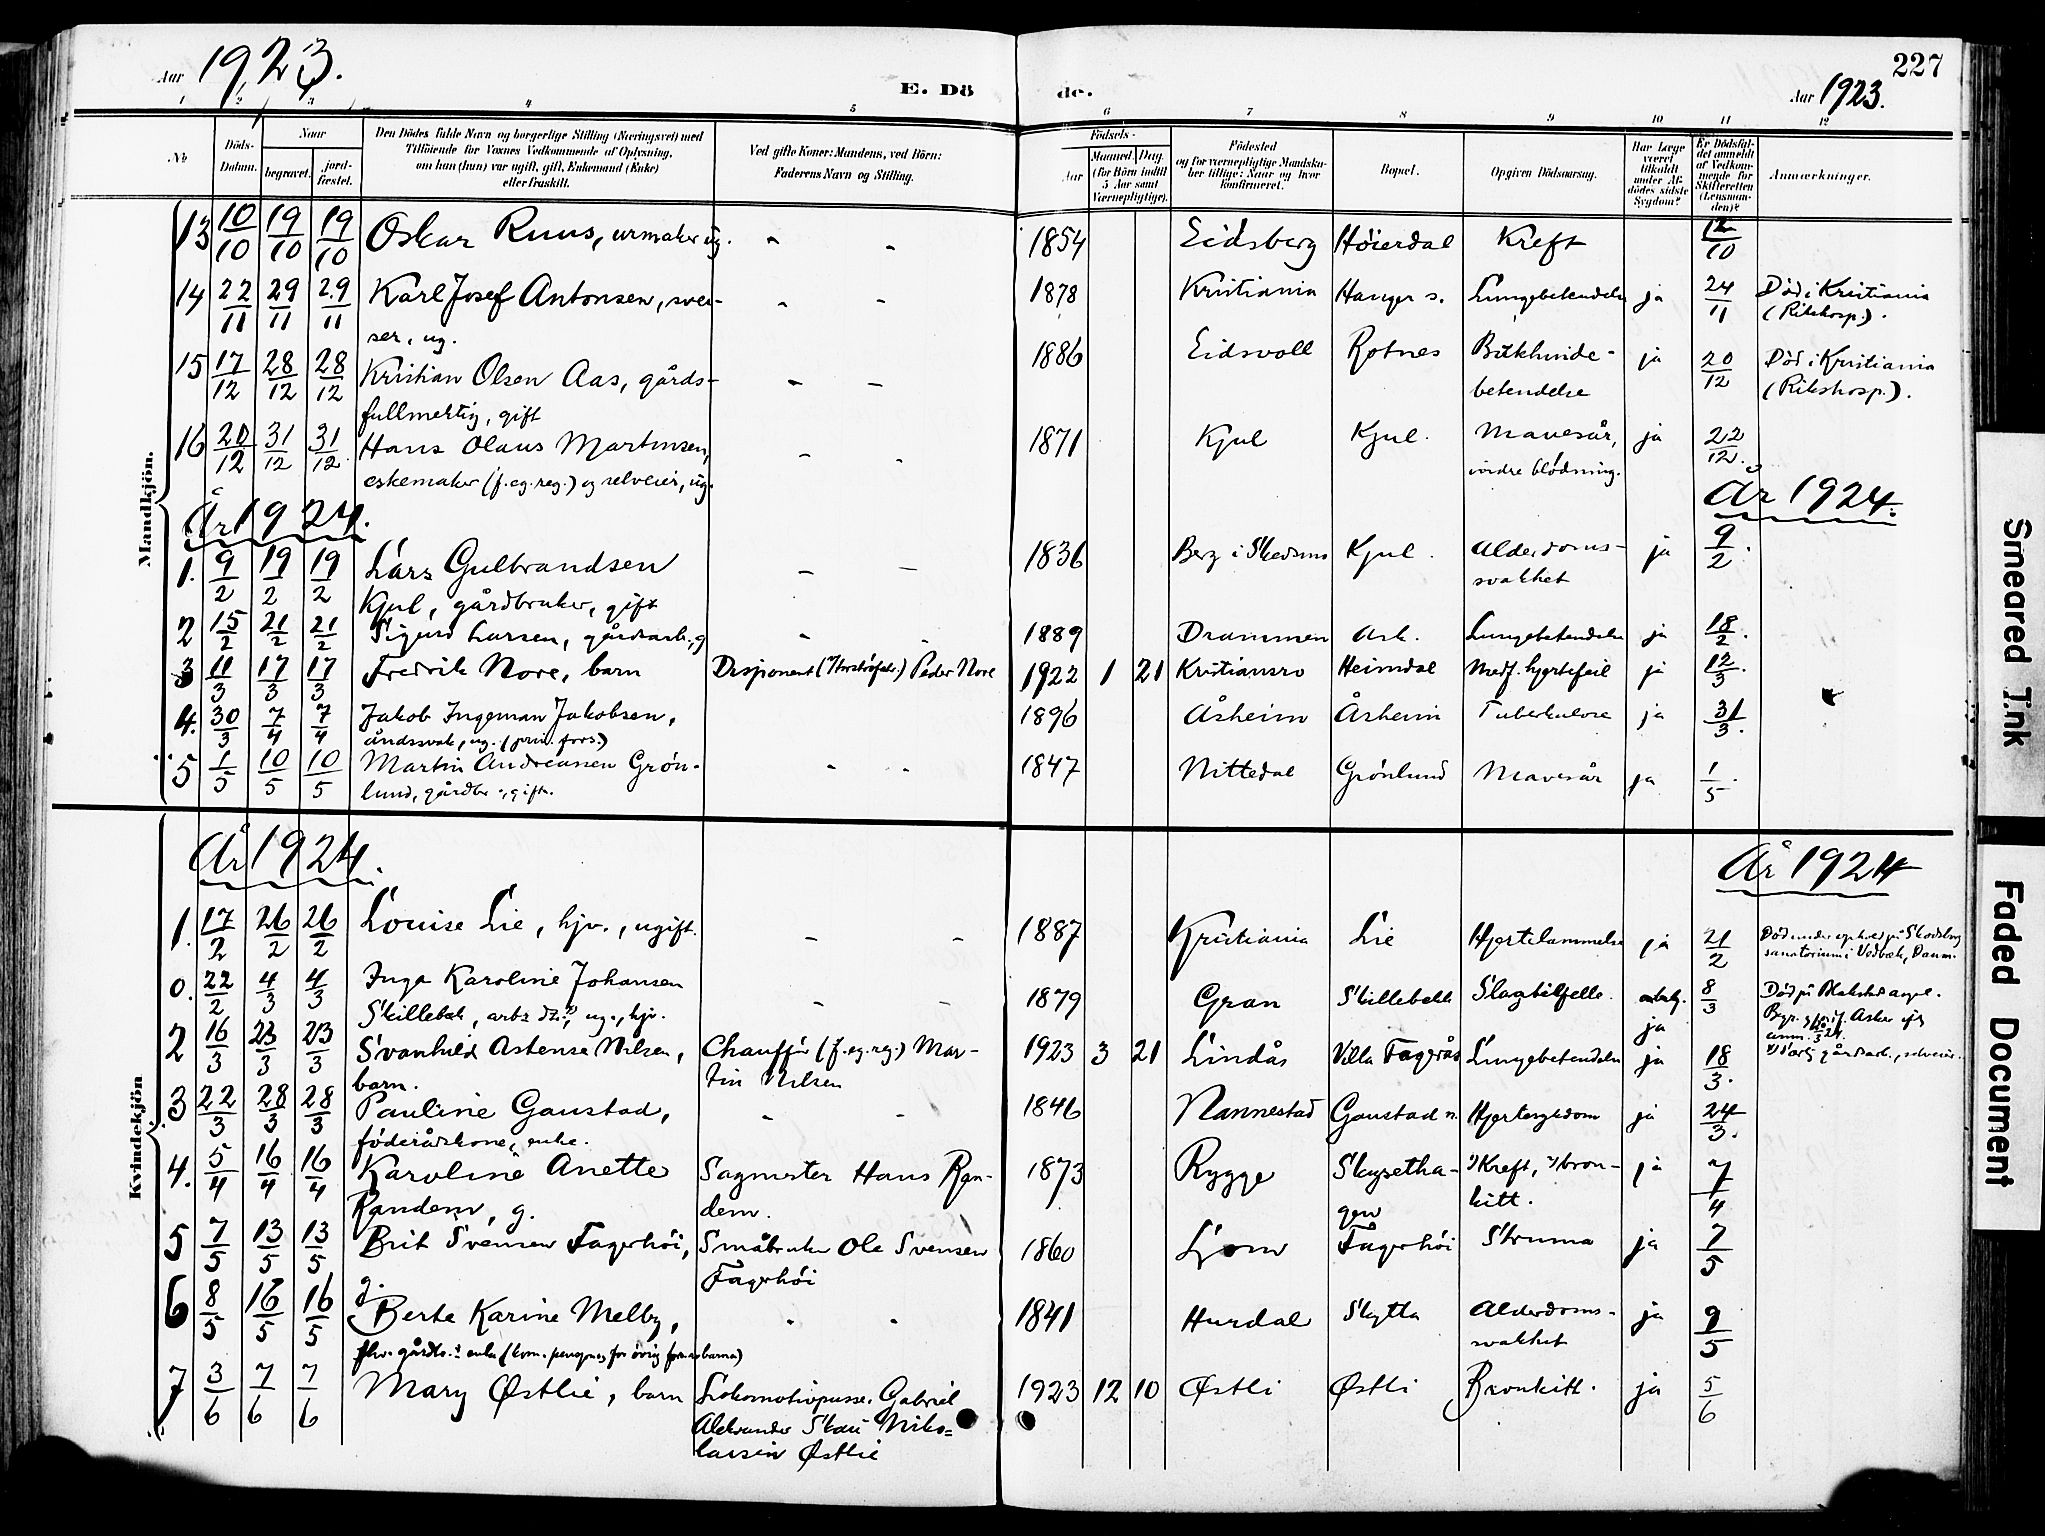 Aar 1923.
E. Dö
de.
227
Aar 1923.
1 2 3 4 5 6 7 8 9 10 11 12
No
Döds-
Datum.
Naar
begravet.
jord-
fæstet.
Den Dödes fulde Navn og borgerlige Stilling (Næringsvei) med
Tilföiende for Voxnes Vedkommende af Oplysning,
om han (hun) var ugift, gift, Enkemand (Enke)
eller fraskilt.
Ved gifte Koner: Mandens, ved Börn:
Faderens Navn og Stilling.
Födsels-
Aar
Maaned. Dag.
(for Börn indtil
5 Aar samt
Værnepligtige).
Födested
og for værnepligtige Mandska-
ber tillige: Naar og hvor
konfirmeret.
Bopæl.
Opgiven Dödsaarsag.
Har Læge
været
tilkaldt
under Af-
dödes sidste
Sygdom?
Er Dödsfal-
det anmeldt
af Vedkom-
mende for
Skifteretten
(Lensman-
den)?
Anmærkninger.
Mandkjön.
13 10/10 19/10 19/10 Oskar Ruus, urmaker ug. " " 1854 Eidsberg Höierdal Kreft 12/10
14 22/11 29/11 29/11 Karl Josef Antonsen, svei- " " 1878 Kristiania Hanger s. Lungebetendelse ja 24/11 Död i Kristiania
ser, ug. (Rikshosp.).
15 17/12 28/12 28/12 Kristian Olsen Aas, gårds- " " 1886 Eidsvoll Rotnes Bukhinde- ja 20/12 Död i Kristiania
fullmektig, gift betendelse (Rikshosp.).
16 20/12 31/12 31/12 Hans Olaus Martinsen, " " 1871 Kjul Kjul. Mavesår, ja 22/12.
eskemaker (f. eg. reg.) og selveier, ug. indre blödning.
År 1924. År 1924.
1. 9/2 19/2 19/2 Lars Gulbrandsen " " 1836 Berg i Skedsmo Kjul. Alderdoms- ja 9/2.
Kjul, gårdbruker, gift svakhet
2 15/2 21/2 21/2 Sigurd Larsen, gårdsarb., g " " 1889 Drammen Ask. Lungebetendelse ja 18/2.
3 11/3 17/3 17/3 Fredrik Nore, barn Disponent Peder Nore 1922 1 21 Kristiansro Heimdal Medf. hjertefeil ja 12/3.
4. 30/3 7/4 7/4 Jakob Ingeman Jakobsen, 1896 Åsheim Åsheim Tuberkulose ja 31/3.
åndssvak, ug. (priv. fors.)
5 1/5 10/5 10/5 Martin Andreassen Grön- " " 1847 Nittedal Grönlund Mavesår ja 1/5.
lund, gårdbr., gift.
Kvindekjön
År 1924. År 1924
1. 17/2 26/2 26/2 Louise Lie, hjv., ugift. " " 1887 Kristiania Lie Hjertelammelse ja 21/2 Död under ophold på Skodsborg
sanatorium i Vedbæk, Danm.
0. 22/2 4/3 4/3 Inga Karoline Johansen " " 1879 Gran Skillebekk Slagtilfelle. ja 8/3 Död på Blakstad asyl.
Skillebek, arbs dtr., ug., hjv.
2 16/3 23/3 23/3 Svanhild Astense Nilsen, Chaufför (f. eg. reg.) Mar- 1923 3 21 Lindås Villa Fagerås Lungebetendelse ja 18/3.
barn. tin Nilsen
3 22/3 28/3 28/3 Pauline Gaustad, " " 1846 Nannestad Gaustad n. Hjertesykdom ja 24/3.
föderådskone, enke.
4. 5/4 16/4 16/4 Karoline Anette Sagmester Hans Ran- 1873 Rygge Skysetha- 1) Kreft, 2) bron- ja 7/4
Randem, g. dem. gen kitt.
5 7/5 13/5 13/5 Brit Svensen Fagerhöi, Småbruker Ole Svensen 1860 Ljom Fagerhöi Struma ja 7/5
g. Fagerhöi
6 8/5 16/5 16/5 Berte Karine Melby, " " 1841 Hurdal Skytta Alderdoms- ja 9/5
fhv. gårdbr.s enke svakhet
7 3/6 7/6 7/6 Mary Østlie, barn Lokomotivpusser Gabriel 1923 12 10 Østli Østli Bronkitt. ja 5/6
Aleksander Skau Niko=
laisen Østlie
Smeared Ink
Faded Document